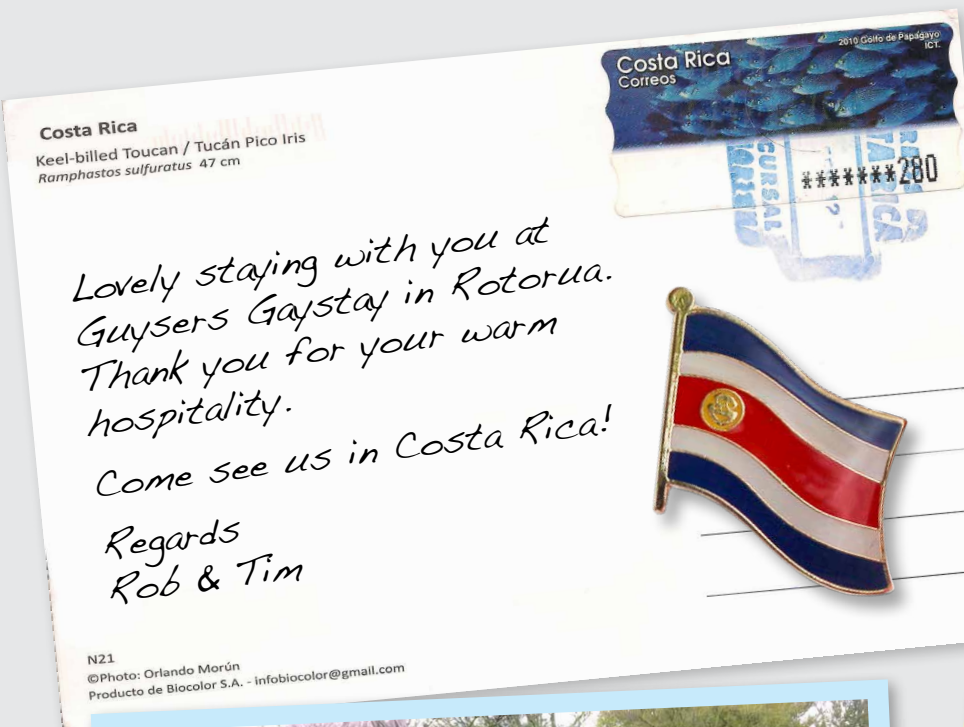 Costa Rica
Keel-billed Toucan / Tucán Pico Iris
Ramphastos sulfuratus 47 cm
Costa Rica
Correos
2010 Golfo de Papagayo
ICT.
*******280
Lovely staying with you at
Guysers Gaystay in Rotorua.
Thank you for your warm
hospitality.
Come see us in Costa Rica!
Regards
Rob & Tim
N21
©Photo: Orlando Morún
Producto de Biocolor S.A. - infobiocolor@gmail.com